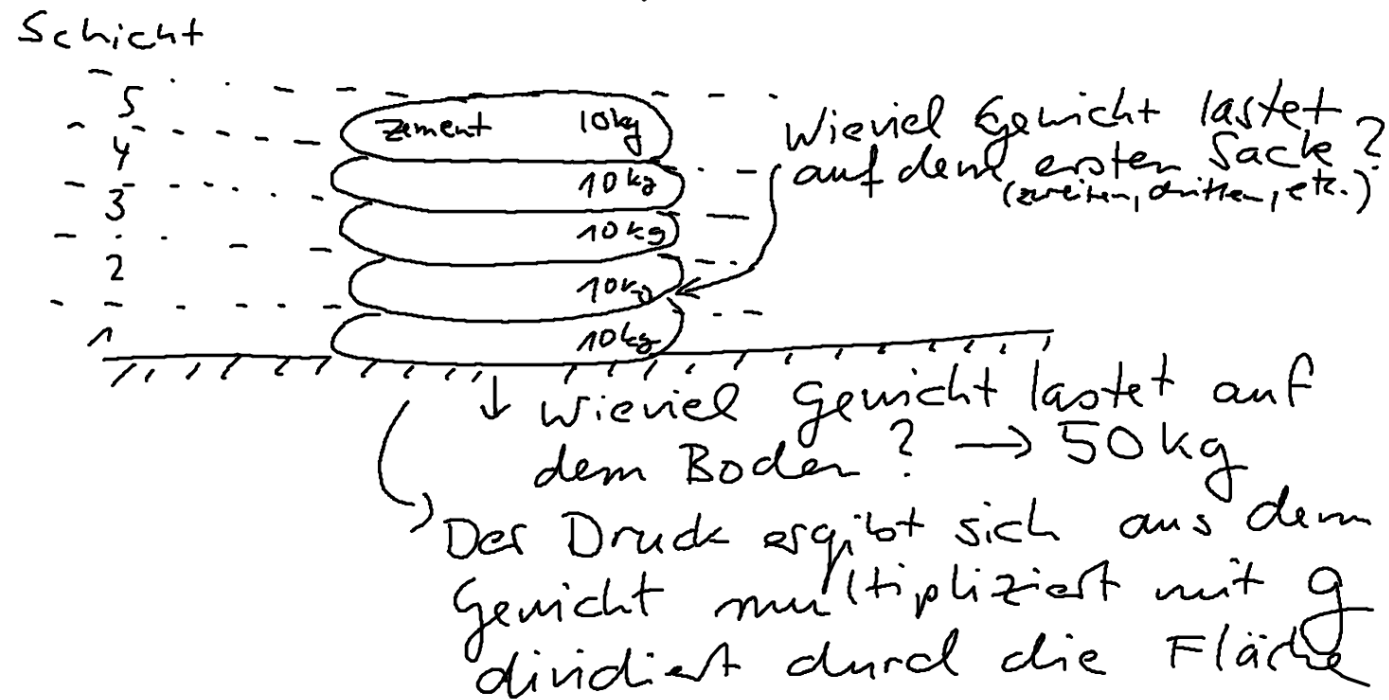 Schicht
5
Zement 10kg
4
10 kg
3
10 kg
2
10kg
1
10kg
Wieviel Gewicht lastet
auf dem ersten Sack?
(zweiten, dritten, etc.)
Wieviel Gewicht lastet auf
dem Boden? → 50 kg
Der Druck ergibt sich aus dem
Gewicht multipliziert mit g
dividiert durch die Fläche